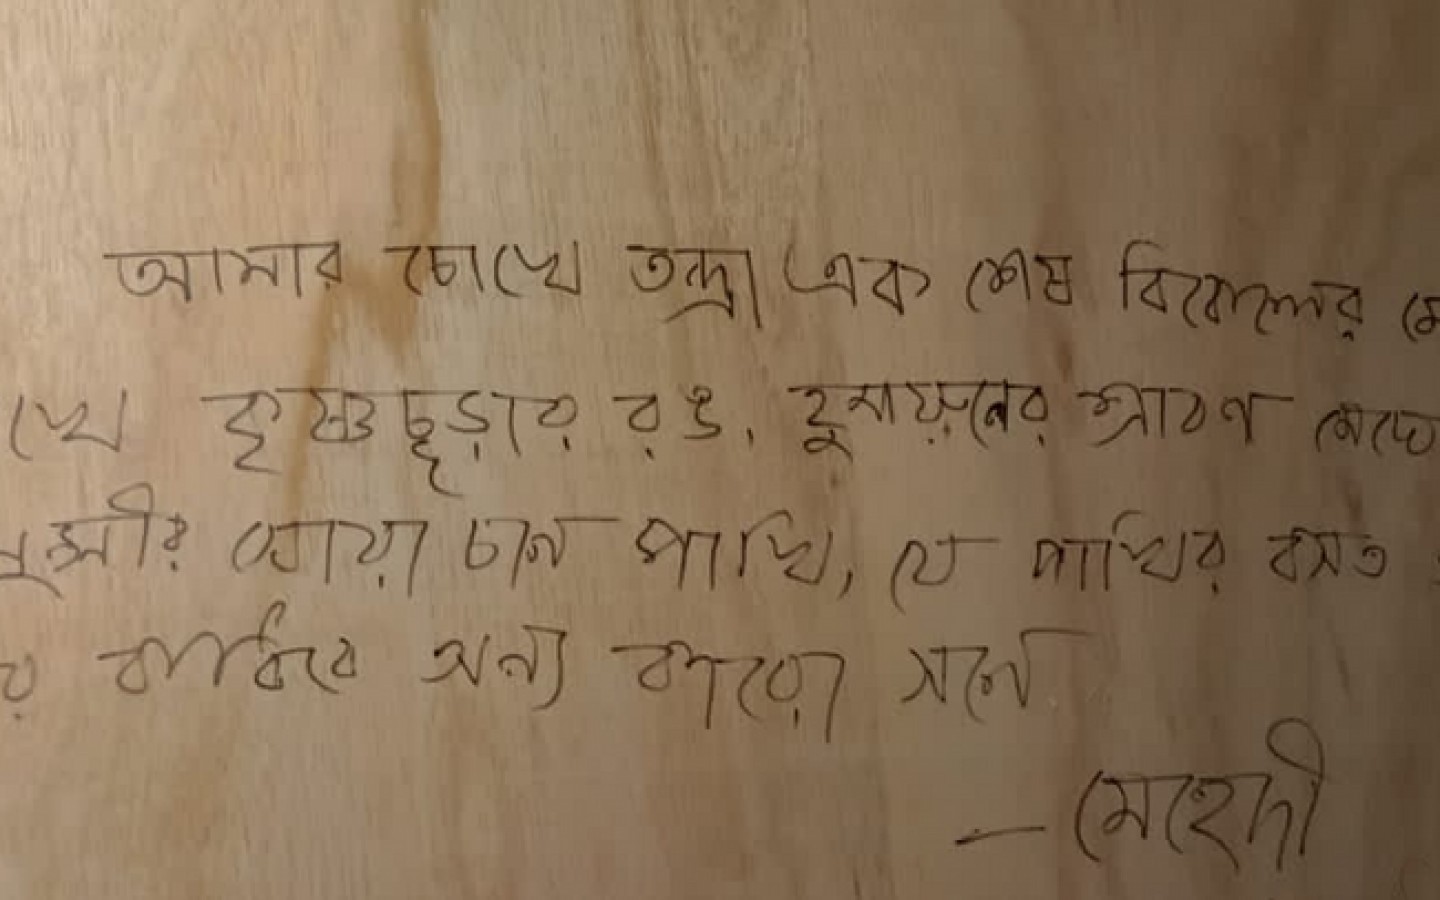 আমার চোখে তন্দ্রা এক শেষ বিকেলের মে
খে কৃষ্ণচূড়ার রঙ, হুমায়ূনের শ্রাবণ মেঘে
খোয়া চাল পাখি, যে পাখির বসত
র কার্নিবে অন্য কারো সনে
— মেহেদী